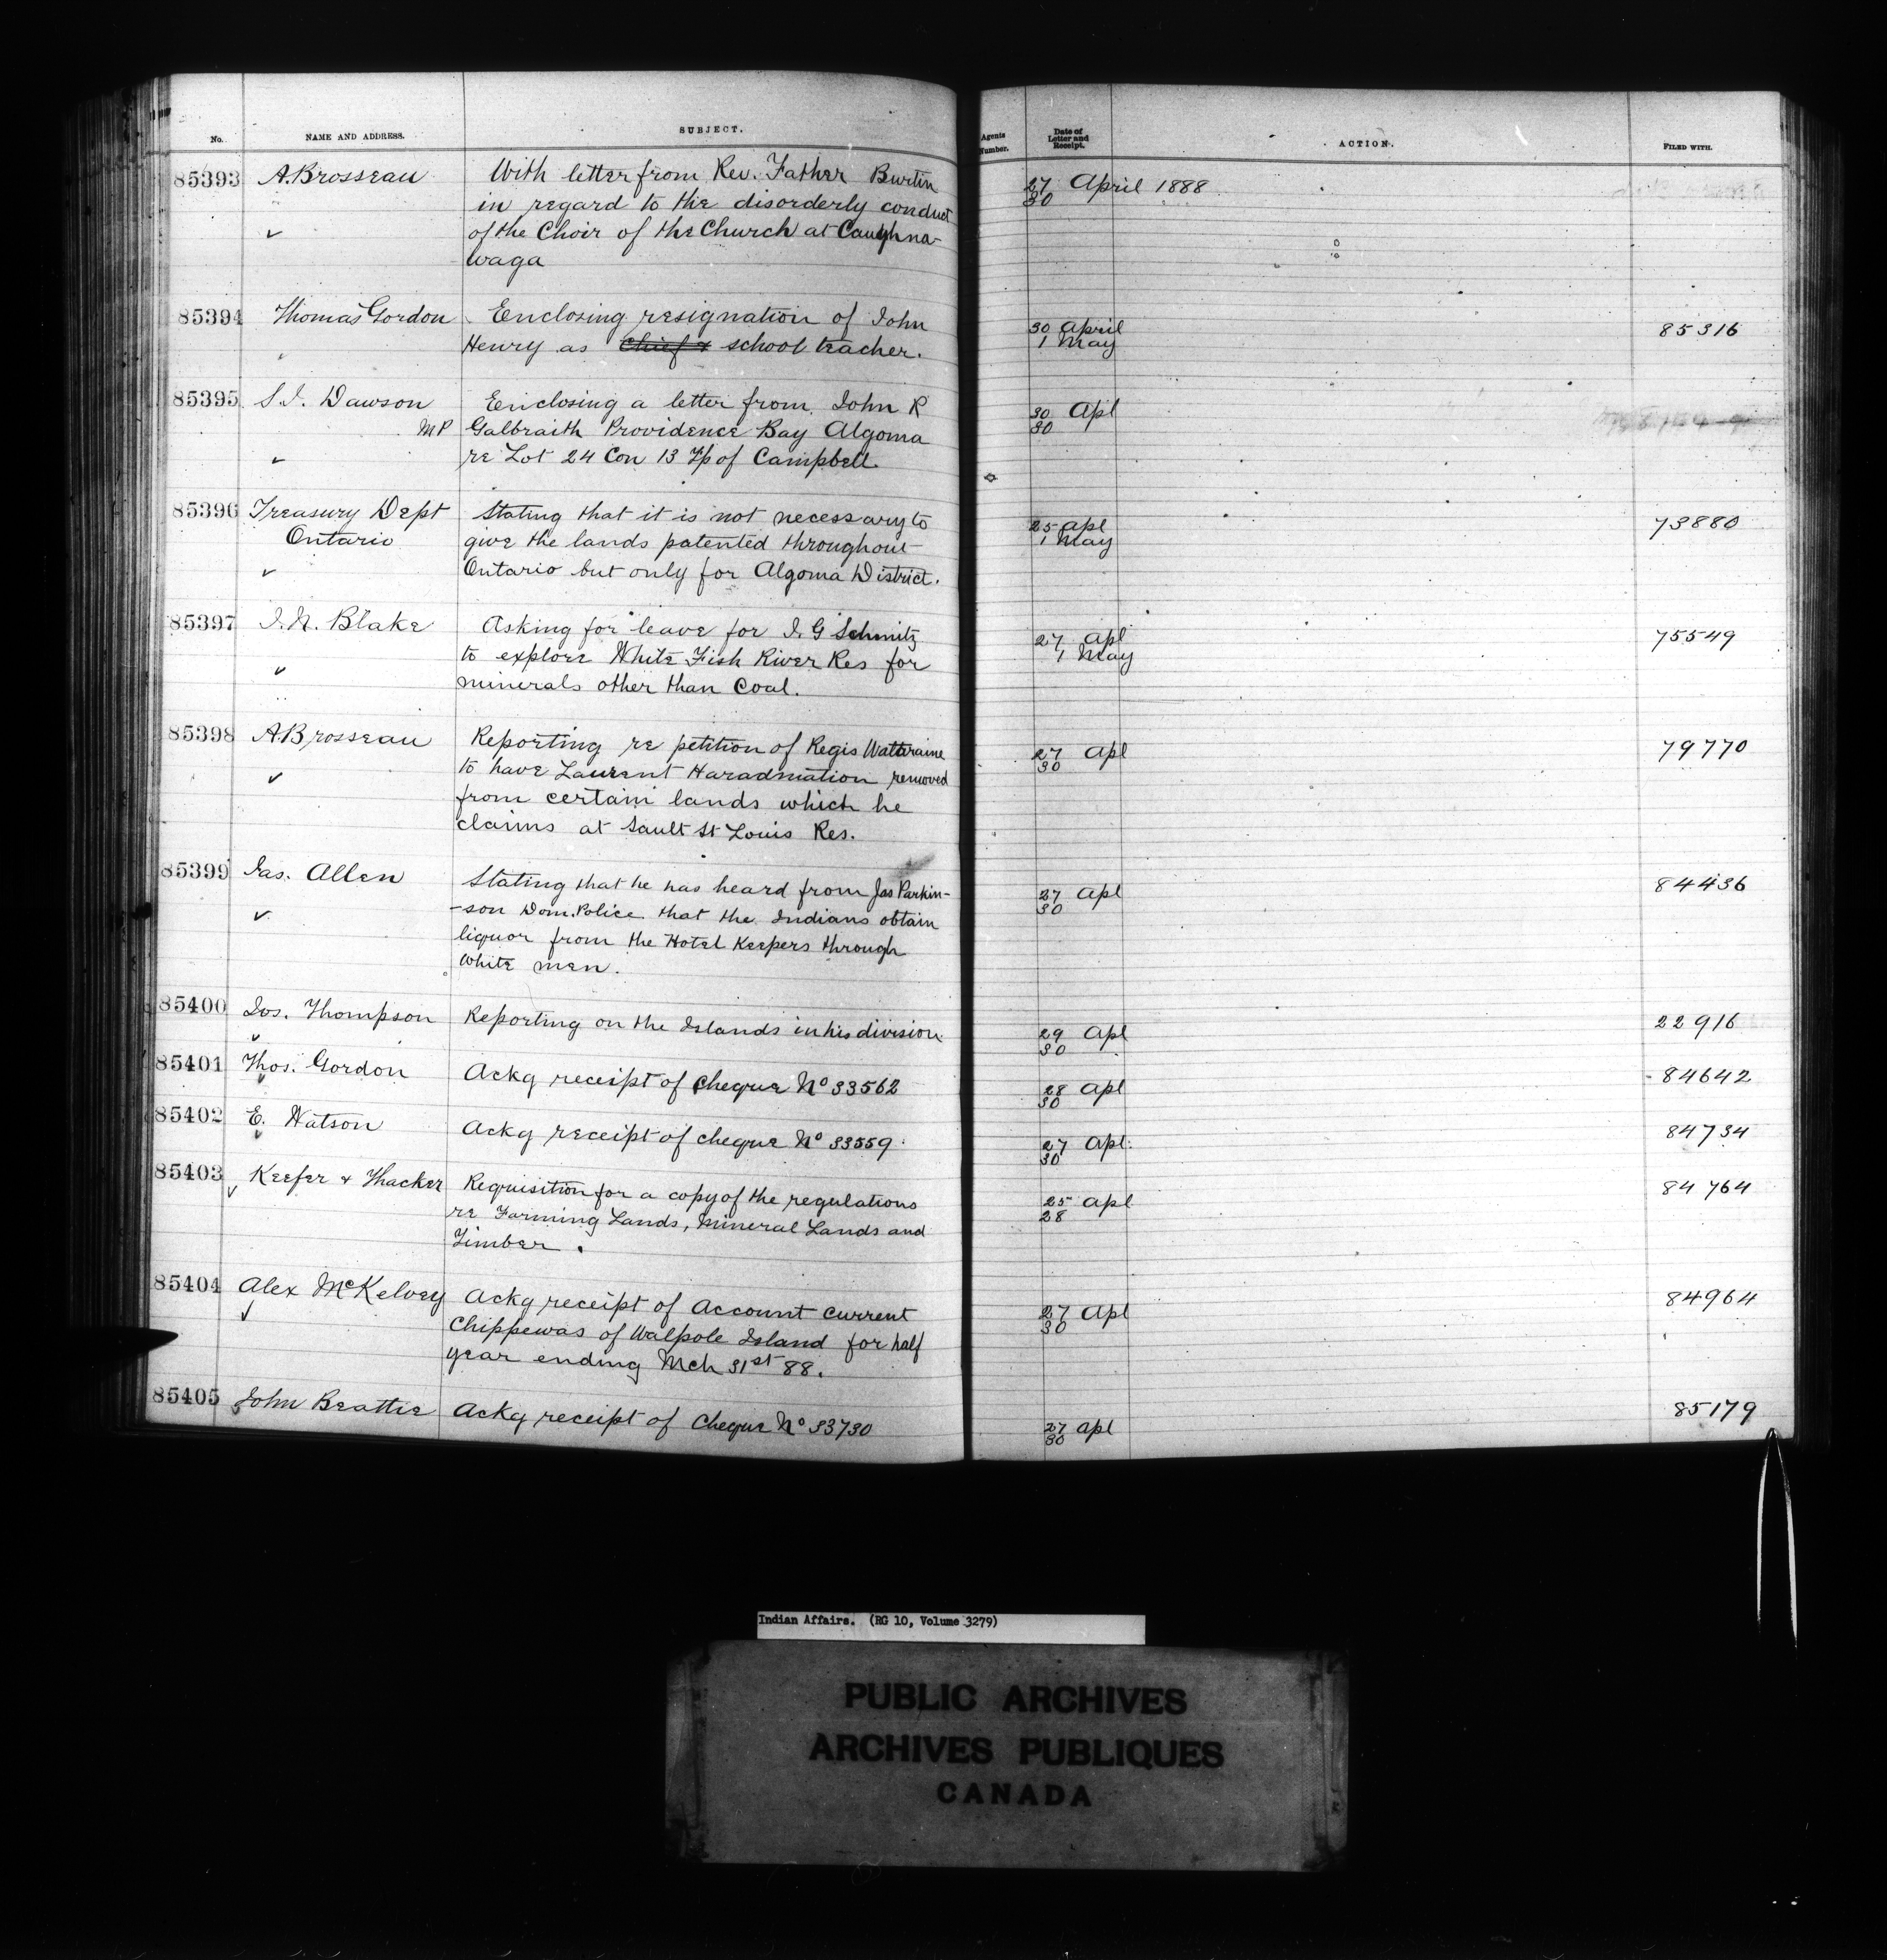 No. NAME AND ADDRESS. SUBJECT. Agents Number. Date of Letter and Receipt. ACTION. FILED WITH.
85393 A. Brosseau With letter from Rev. Father Burtin 27 April 1888
in regard to the disorderly conduct 30
✓ of the Choir of the Church at Caughna-
waga
85394 Thomas Gordon Enclosing resignation of John 30 April 85316
Henry as Chief & school teacher. 1 May
85395 S.J. Dawson Enclosing a letter from John R 30 Apl
MP Galbraith Providence Bay Algoma 30
✓ re Lot 24 Con 13 Tp of Campbell.
85396 Treasury Dept Stating that it is not necessary to 25 apl 73880
Ontario give the lands patented throughout 1 May
✓ Ontario but only for Algoma District.
85397 J.N. Blake Asking for leave for J.G Schmitz 27 apl 75549
✓ to explore White Fish River Res for 1 May
minerals other than Coal.
85398 A Brosseau Reporting re petition of Regis 27 Apl 79770
✓ to have Laurent removed 30
from certain lands which he
claims at Sault St Louis Res.
85399 Jas. Allen Stating that he has heard from Jas Parkin- 27 apl 84436
✓ -son Dom. Police that the Indians obtain 30
liquor from the Hotel Keepers through
White men.
85400 Jos. Thompson Reporting on the Islands in his division. 29 Apl 22916
✓ 30
85401 Thos. Gordon Ackg receipt of Cheque No 33562 28 apl 84642
✓ 30
85402 E. Watson Ackg receipt of cheque No 33559. 27 Apl. 84734
✓ 30
85403 Keefer & Thacker Requisition for a copy of the regulations 25 apl 84764
✓ re Farming Lands, Mineral Lands and 28
Timber.
85404 Alex McKelvey Ackg receipt of Account Current 27 Apl 84964
✓ Chippewas of Walpole Island for half 30
year ending Mch 31st 88.
85405 John Beattie Ackg receipt of Cheque No 33730 27 apl 85179
30
Indian Affairs. (RG 10, Volume 3279)
PUBLIC ARCHIVES
ARCHIVES PUBLIQUES
CANADA